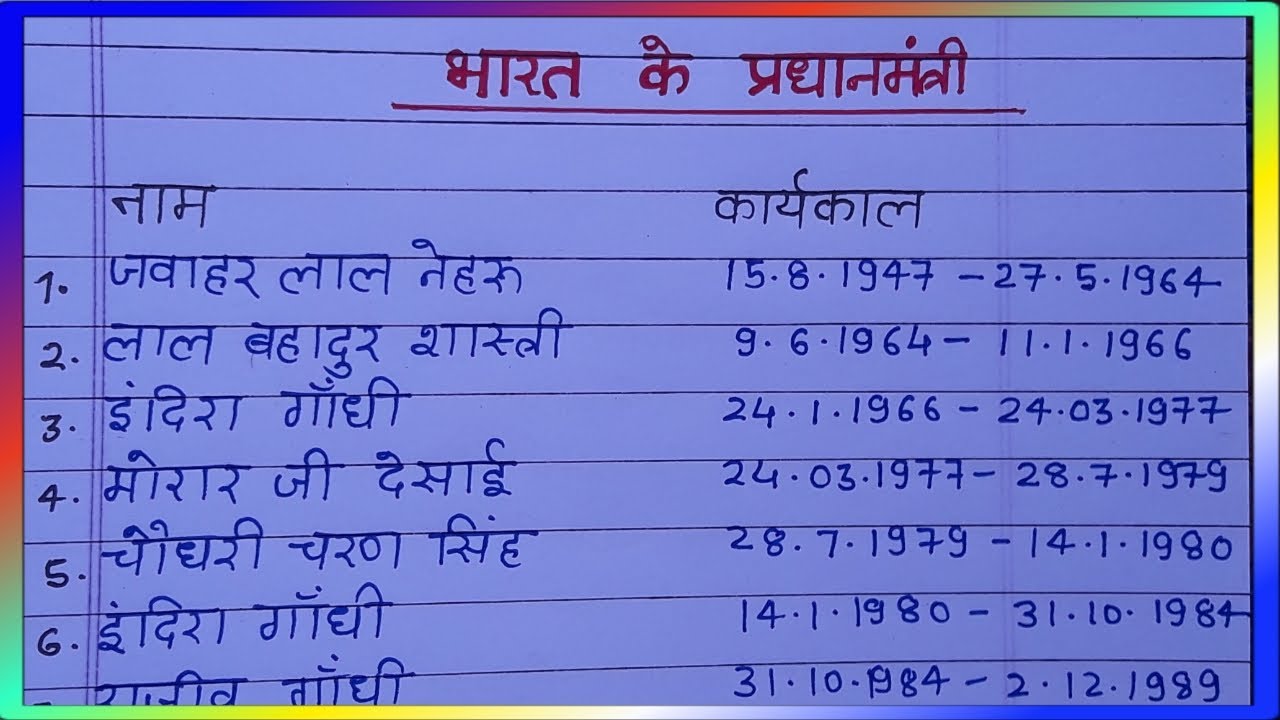 भारत के प्रधानमंत्री
नाम कार्यकाल
1. जवाहर लाल नेहरू 15.8.1947 - 27.5.1964
2. लाल बहादुर शास्त्री 9.6.1964 - 11.1.1966
3. इंदिरा गाँधी 24.1.1966 - 24.03.1977
4. मोरार जी देसाई 24.03.1977 - 28.7.1979
5. चौधरी चरण सिंह 28.7.1979 - 14.1.1980
6. इंदिरा गाँधी 14.1.1980 - 31.10.1984
राजीव गाँधी 31.10.1984 - 2.12.1989